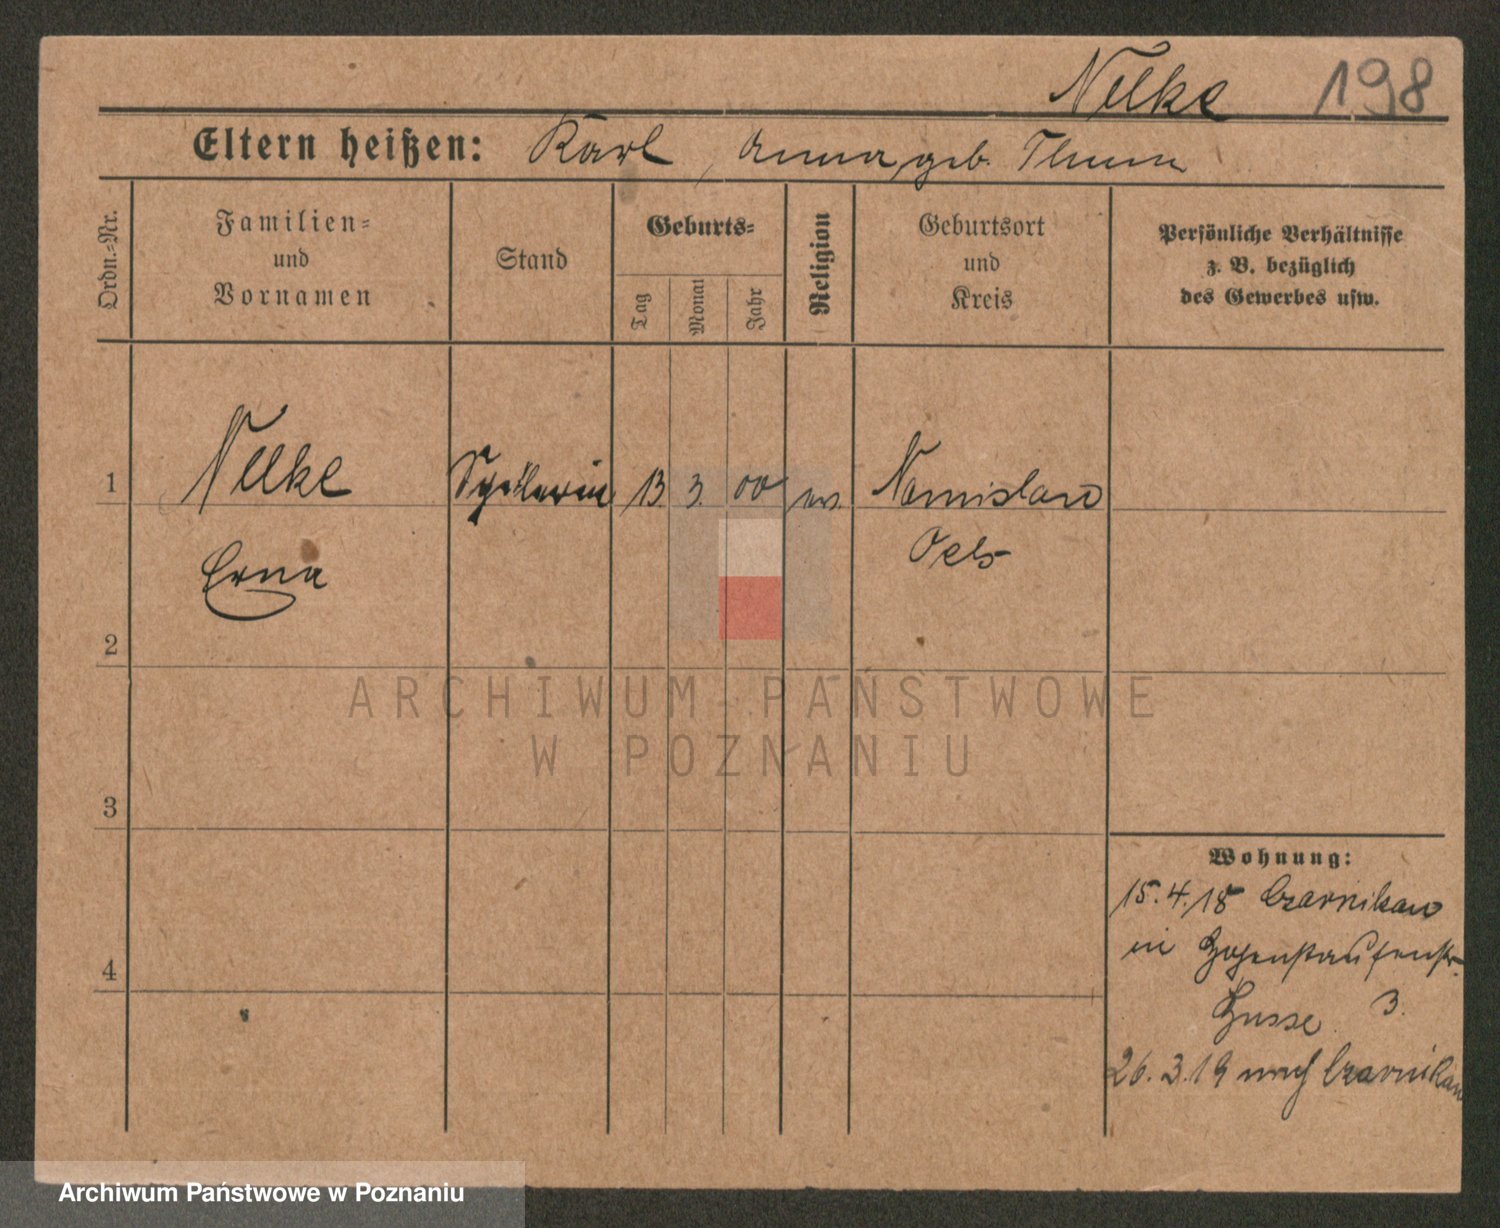 Nelke 198
Eltern heißen: Karl, Anna, geb. Thum
Ordn.-Nr.
Familien-
und
Vornamen
Stand
Geburts-
Tag
Monat
Jahr
Religion
Geburtsort
und
Kreis
Persönliche Verhältnisse
z. B. bezüglich
des Gewerbes usw.
1 Nelke Schülerin 13. 3. 00 ev. Namislau
Erna Oels
2
3
4
Wohnung:
15.4.18 Czarnikau
in Hohenstaufenstr.
Husse 3.
26.3.19 nach Czarnikau
ARCHIWUM PAŃSTWOWE
W POZNANIU
Archiwum Państwowe w Poznaniu